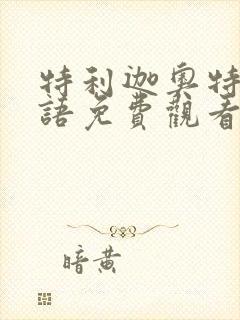 特利迦奧特
語免費觀看
暗黄